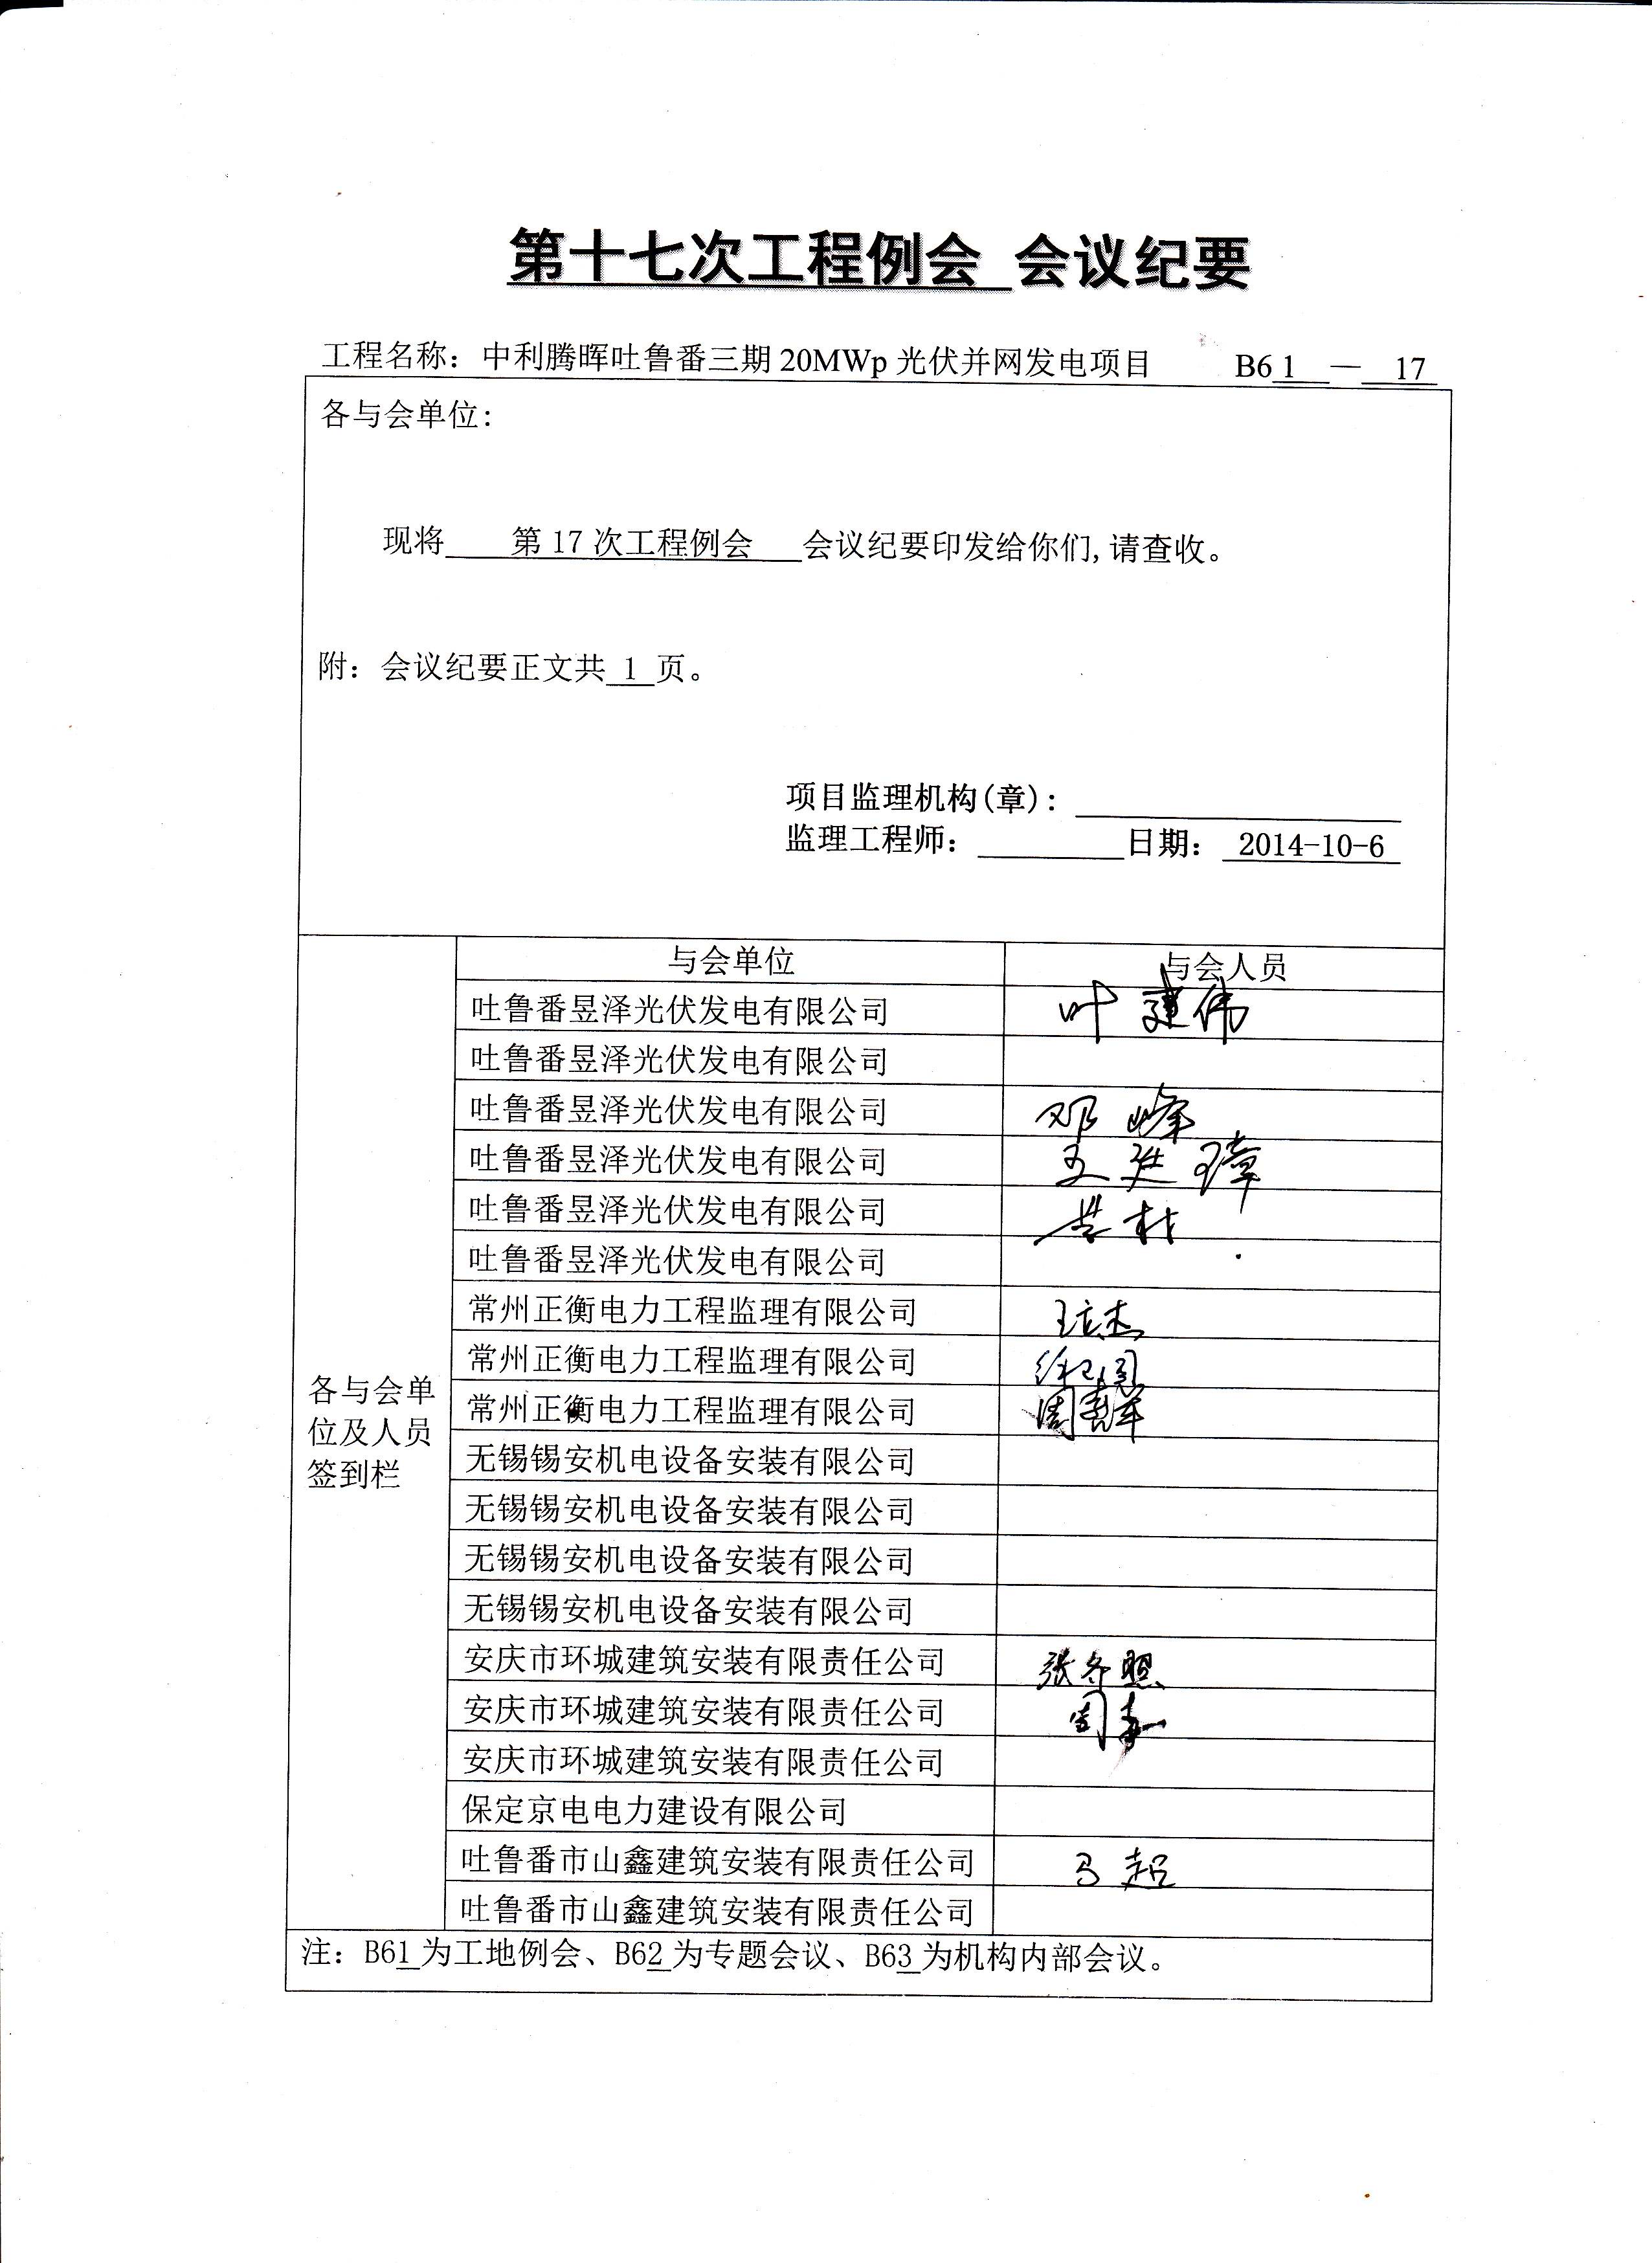 第十七次工程例会 会议纪要
工程名称：中利腾晖吐鲁番三期 20MWp 光伏并网发电项目 B6 1 — 17
各与会单位：
现将 第 17 次工程例会 会议纪要印发给你们,请查收。
附：会议纪要正文共 1 页。
项目监理机构(章)：
监理工程师： 日期： 2014-10-6
与会单位 与会人员
吐鲁番昱泽光伏发电有限公司 叶建伟
吐鲁番昱泽光伏发电有限公司
吐鲁番昱泽光伏发电有限公司 邓峰
吐鲁番昱泽光伏发电有限公司
吐鲁番昱泽光伏发电有限公司
吐鲁番昱泽光伏发电有限公司
常州正衡电力工程监理有限公司
常州正衡电力工程监理有限公司
常州正衡电力工程监理有限公司
各与会单
位及人员
签到栏
无锡锡安机电设备安装有限公司
无锡锡安机电设备安装有限公司
无锡锡安机电设备安装有限公司
无锡锡安机电设备安装有限公司
安庆市环城建筑安装有限责任公司 张冬照
安庆市环城建筑安装有限责任公司
安庆市环城建筑安装有限责任公司
保定京电电力建设有限公司
吐鲁番市山鑫建筑安装有限责任公司 马超
吐鲁番市山鑫建筑安装有限责任公司
注：B61 为工地例会、B62 为专题会议、B63 为机构内部会议。